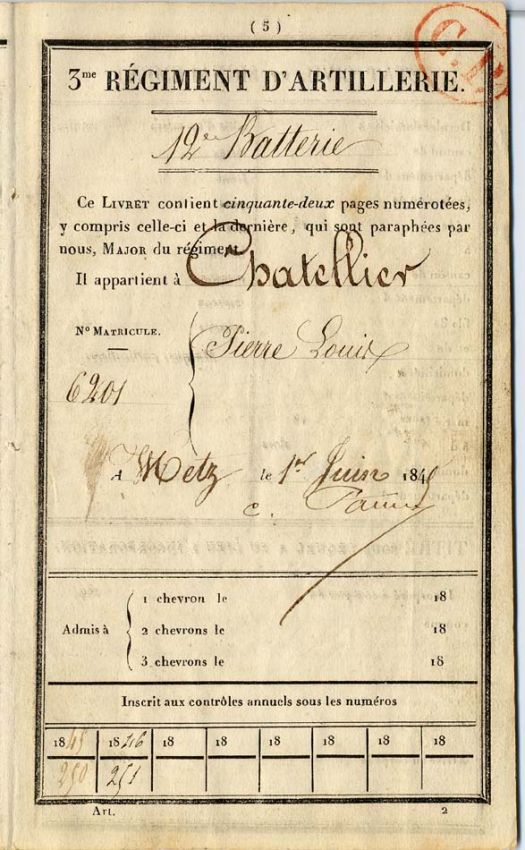 ( 5 )
3me RÉGIMENT D'ARTILLERIE.
12e Batterie
Ce LIVRET contient cinquante-deux pages numérotées,
y compris celle-ci et la dernière, qui sont paraphées par
nous, MAJOR du régiment.
Il appartient à Chatellier
No MATRICULE.
Pierre Louis
6201
A Metz le 1er Juin 184
c.
1 chevron le 18
Admis à 2 chevrons le 18
3 chevrons le 18
Inscrit aux contrôles annuels sous les numéros
1845 1846 18 18 18 18 18 18
250 251
Art. 2